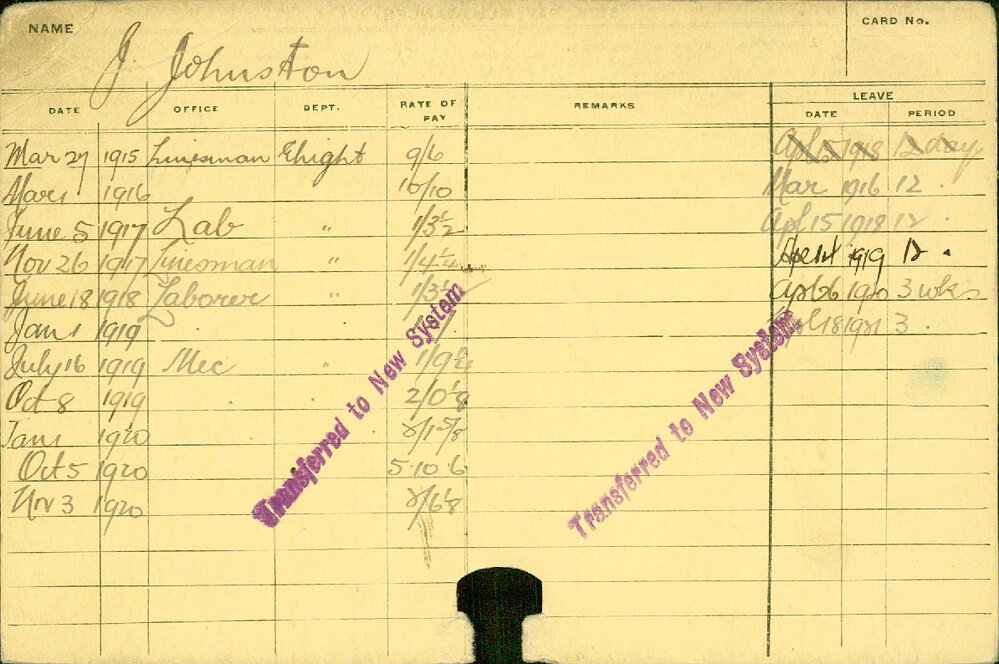 NAME
CARD No.
J. Johnston
LEAVE
DATE OFFICE DEPT. RATE OF PAY REMARKS DATE PERIOD
Mar 27 1915 Linesman Elight 9/6 Apl 15 1918 12 days
Mar 1 1916 10/10 Mar 1916 12 "
June 5 1917 Lab " 1/3½ Apl 15 1918 12 "
Nov 26 1917 Linesman " 1/4¼ 1919 12 "
June 18 1918 Laborer " Apl 26 1920 3 wks
Jan 1 1919 18 1921 3 "
July 16 1919 Mec "
Oct 8 1919 " " 2/0⅛
Jan 1 1920 2/1⅝
Oct 5 1920 5 10 6
Nov 3 1920 2/6⅛
Transferred to New System
Transferred to New System